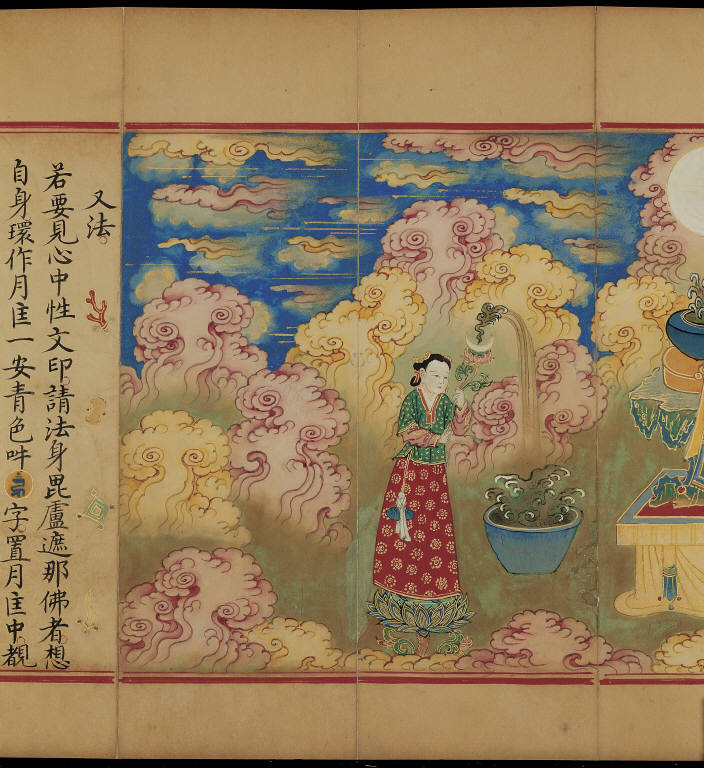 又法
若要見心中性文印請法身毘盧遮那佛者想
自身環作月𠥓一安青色吽字置月𠥓中覩